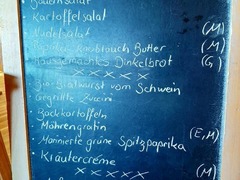 Bauernsalat
Kartoffelsalat
Nudelsalat (M)
Paprika-Knoblauch Butter (M)
Hausgemachtes Dinkelbrot (G)
x x x x x
Bio-Bratwurst vom Schwein
Gegrillte Zuccini
Backkartoffeln
Möhrengratin (E, M)
Marinierte grüne Spitzpaprika
Kräutercréme (M)
x x x x x